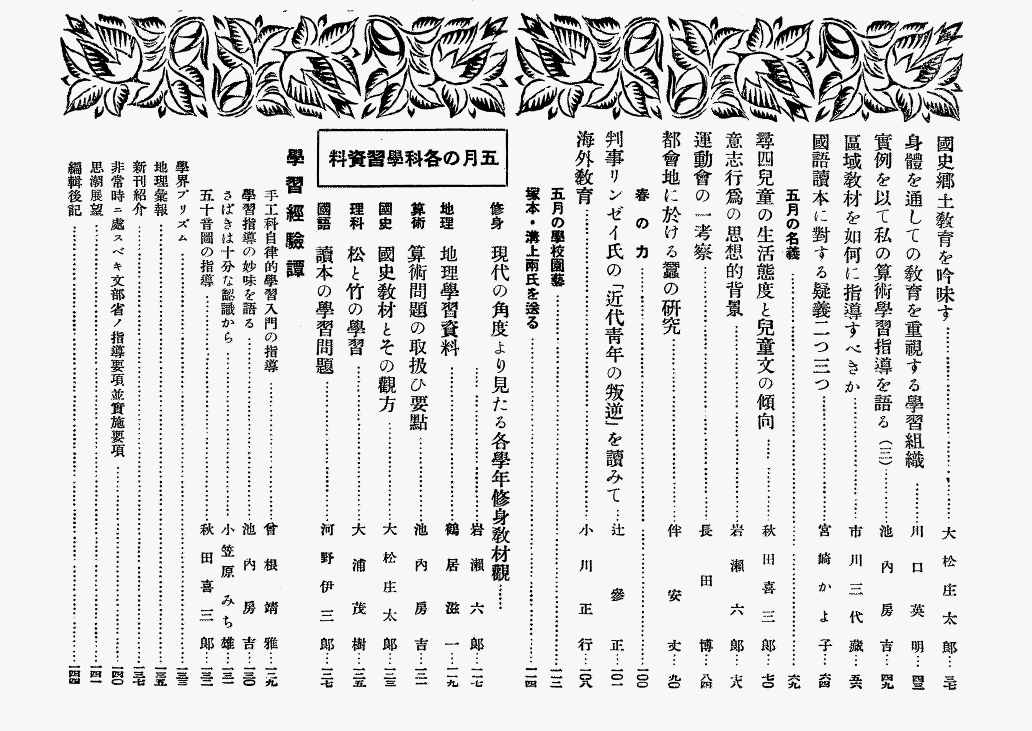 國史郷土教育を吟味す……大松庄太郎…三七
身體を通しての教育を重視する學習組織……川口英明…四三
實例を以て私の算術學習指導を語る（三）……池內房吉…四九
區域教材を如何に指導すべきか……市川三代藏…五六
國語讀本に對する疑義二つ三つ……宮崎かよ子…六四
五月の名義……六九
尋四兒童の生活態度と兒童文の傾向……秋田喜三郎…七〇
意志行爲の思想的背景……岩瀨六郎…七八
運動會の一考察……長田博…八四
都會地に於ける蠶の研究……伴安丈…九〇
春の力……一〇〇
判事リンゼイ氏の「近代靑年の叛逆」を讀みて…辻參正…一〇一
海外敎育……小川正行…一〇八
五月の學校園藝……一一三
塚本・溝上兩氏を送る……一一四
五月の各科學習資料
修身 現代の角度より見たる各學年修身敎材觀……岩瀨六郎…一一七
地理 地理學習資料……鶴居滋一…一一九
算術 算術問題の取扱ひ要點……池內房吉…一二一
國史 國史敎材とその觀方……大松庄太郎…一二三
理科 松と竹の學習……大浦茂樹…一二五
國語 讀本の學習問題……河野伊三郎…一二七
學習經驗譚
手工科自律的學習入門の指導……曾根靖雅…一二九
學習指導の妙味を語る……池內房吉…一三〇
さばきは十分な認識から……小笠原みち雄…一三一
五十音圖の指導……秋田喜三郎…一三二
學界プリズム……一三三
地理彙報……一三五
新刊紹介……一三七
非常時ニ處スベキ文部省ノ指導要項並實施要項……一四〇
思潮展望……一四一
編輯後記……一四四